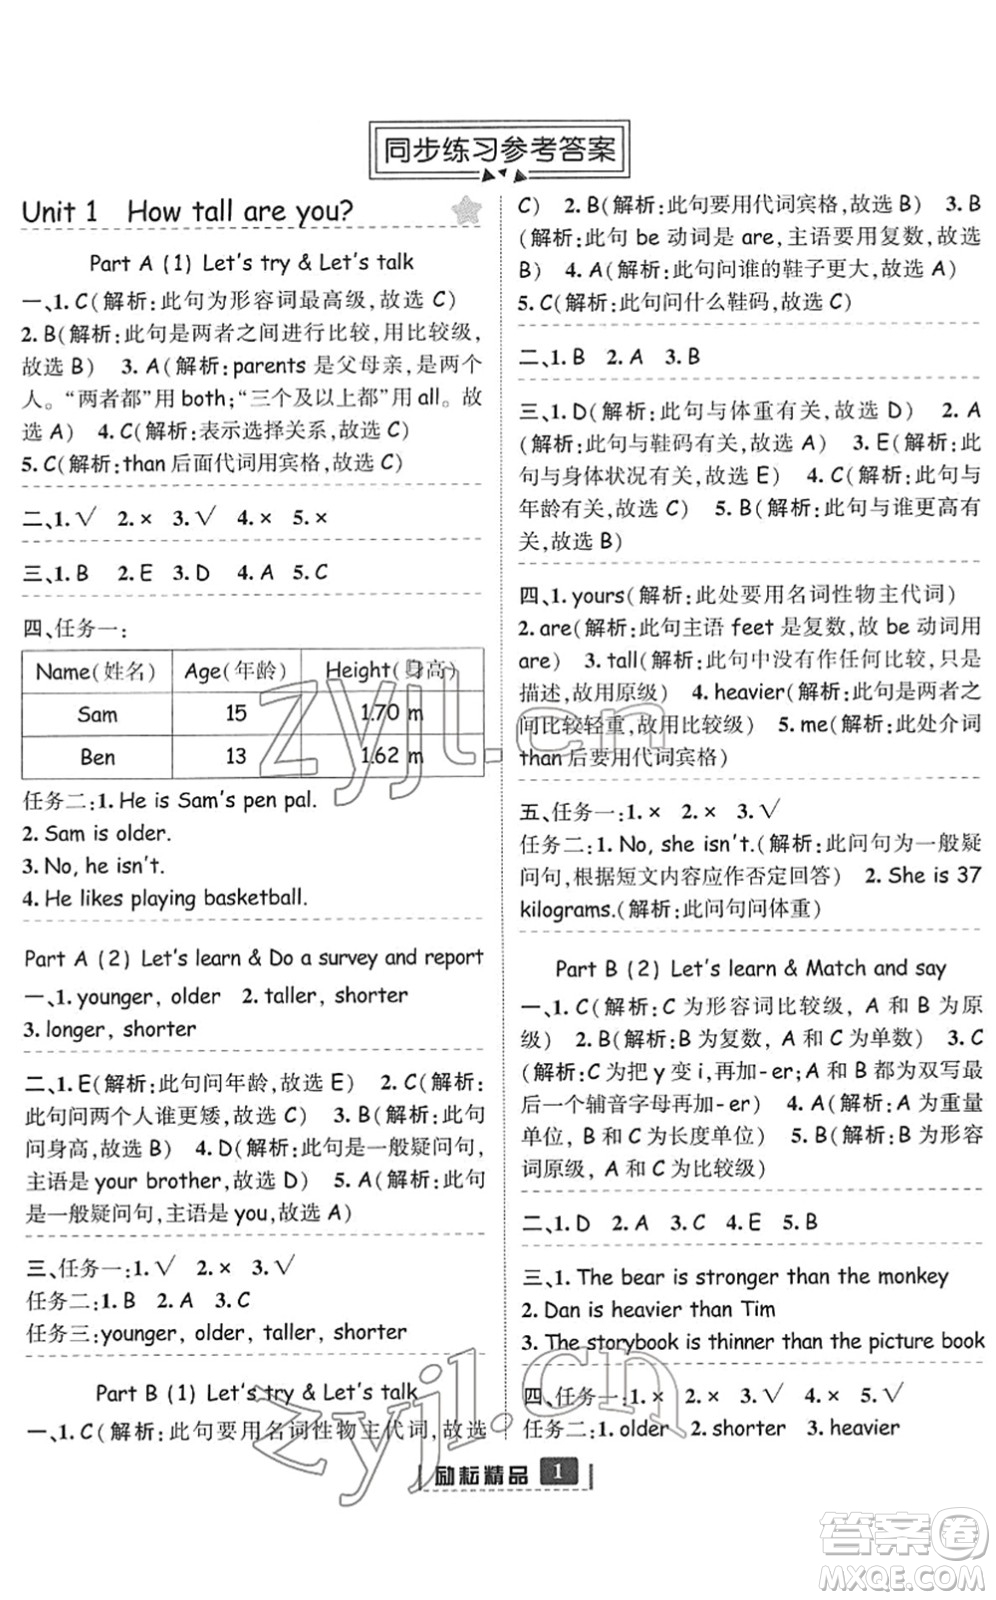 同步练习参考答案
Unit 1 How tall are you?
Part A (1) Let's try & Let's talk
一、1. C(解析:此句为形容词最高级,故选 C)
2. B(解析:此句是两者之间进行比较,用比较级,
故选 B) 3. A(解析:parents 是父母亲,是两个
人。“两者都”用 both;“三个及以上都”用 all。故
选 A) 4. C(解析:表示选择关系,故选 C)
5. C(解析:than 后面代词用宾格,故选 C)
二、1. √ 2. × 3. √ 4. × 5. ×
三、1. B 2. E 3. D 4. A 5. C
四、任务一:
Name(姓名) Age(年龄) Height(身高)
Sam 15 1.70 m
Ben 13 1.62 m
任务二:1. He is Sam's pen pal.
2. Sam is older.
3. No, he isn't.
4. He likes playing basketball.
Part A (2) Let's learn & Do a survey and report
一、1. younger, older 2. taller, shorter
3. longer, shorter
二、1. E(解析:此句问年龄,故选 E) 2. C(解析:
此句问两个人谁更矮,故选 C) 3. B(解析:此句
问身高,故选 B) 4. D(解析:此句是一般疑问句,
主语是 your brother,故选 D) 5. A(解析:此句
是一般疑问句,主语是 you,故选 A)
三、任务一:1. √ 2. × 3. √
任务二:1. B 2. A 3. C
任务三:younger, older, taller, shorter
Part B (1) Let's try & Let's talk
一、1. C(解析:此句要用名词性物主代词,故选
C) 2. B(解析:此句要用代词宾格,故选 B) 3. B
(解析:此句 be 动词是 are,主语要用复数,故选
B) 4. A(解析:此句问谁的鞋子更大,故选 A)
5. C(解析:此句问什么鞋码,故选 C)
二、1. B 2. A 3. B
三、1. D(解析:此句与体重有关,故选 D) 2. A
(解析:此句与鞋码有关,故选 A) 3. E(解析:此
句与身体状况有关,故选 E) 4. C(解析:此句与
年龄有关,故选 C) 5. B(解析:此句与谁更高有
关,故选 B)
四、1. yours(解析:此处要用名词性物主代词)
2. are(解析:此句主语 feet 是复数,故 be 动词用
are) 3. tall(解析:此句中没有作任何比较,只是
描述,故用原级) 4. heavier(解析:此句是两者之
间比较轻重,故用比较级) 5. me(解析:此处介词
than 后要用代词宾格)
五、任务一:1. × 2. × 3. √
任务二:1. No, she isn't.(解析:此问句为一般疑
问句,根据短文内容应作否定回答) 2. She is 37
kilograms.(解析:此问句问体重)
Part B (2) Let's learn & Match and say
一、1. C(解析:C 为形容词比较级, A 和 B 为原
级) 2. B(解析:B 为复数, A 和 C 为单数) 3. C
(解析:C 为把 y 变 i,再加-er;A 和 B 都为双写最
后一个辅音字母再加-er) 4. A(解析:A 为重量
单位, B 和 C 为长度单位) 5. B(解析:B 为形容
词原级, A 和 C 为比较级)
二、1. D 2. A 3. C 4. E 5. B
三、1. The bear is stronger than the monkey
2. Dan is heavier than Tim
3. The storybook is thinner than the picture book
四、任务一:1. × 2. × 3. √ 4. × 5. √
任务二:1. older 2. shorter 3. heavier
励耘精品 1
zyjl.cn
zyjl.cn
答案圈
MXQE.COM